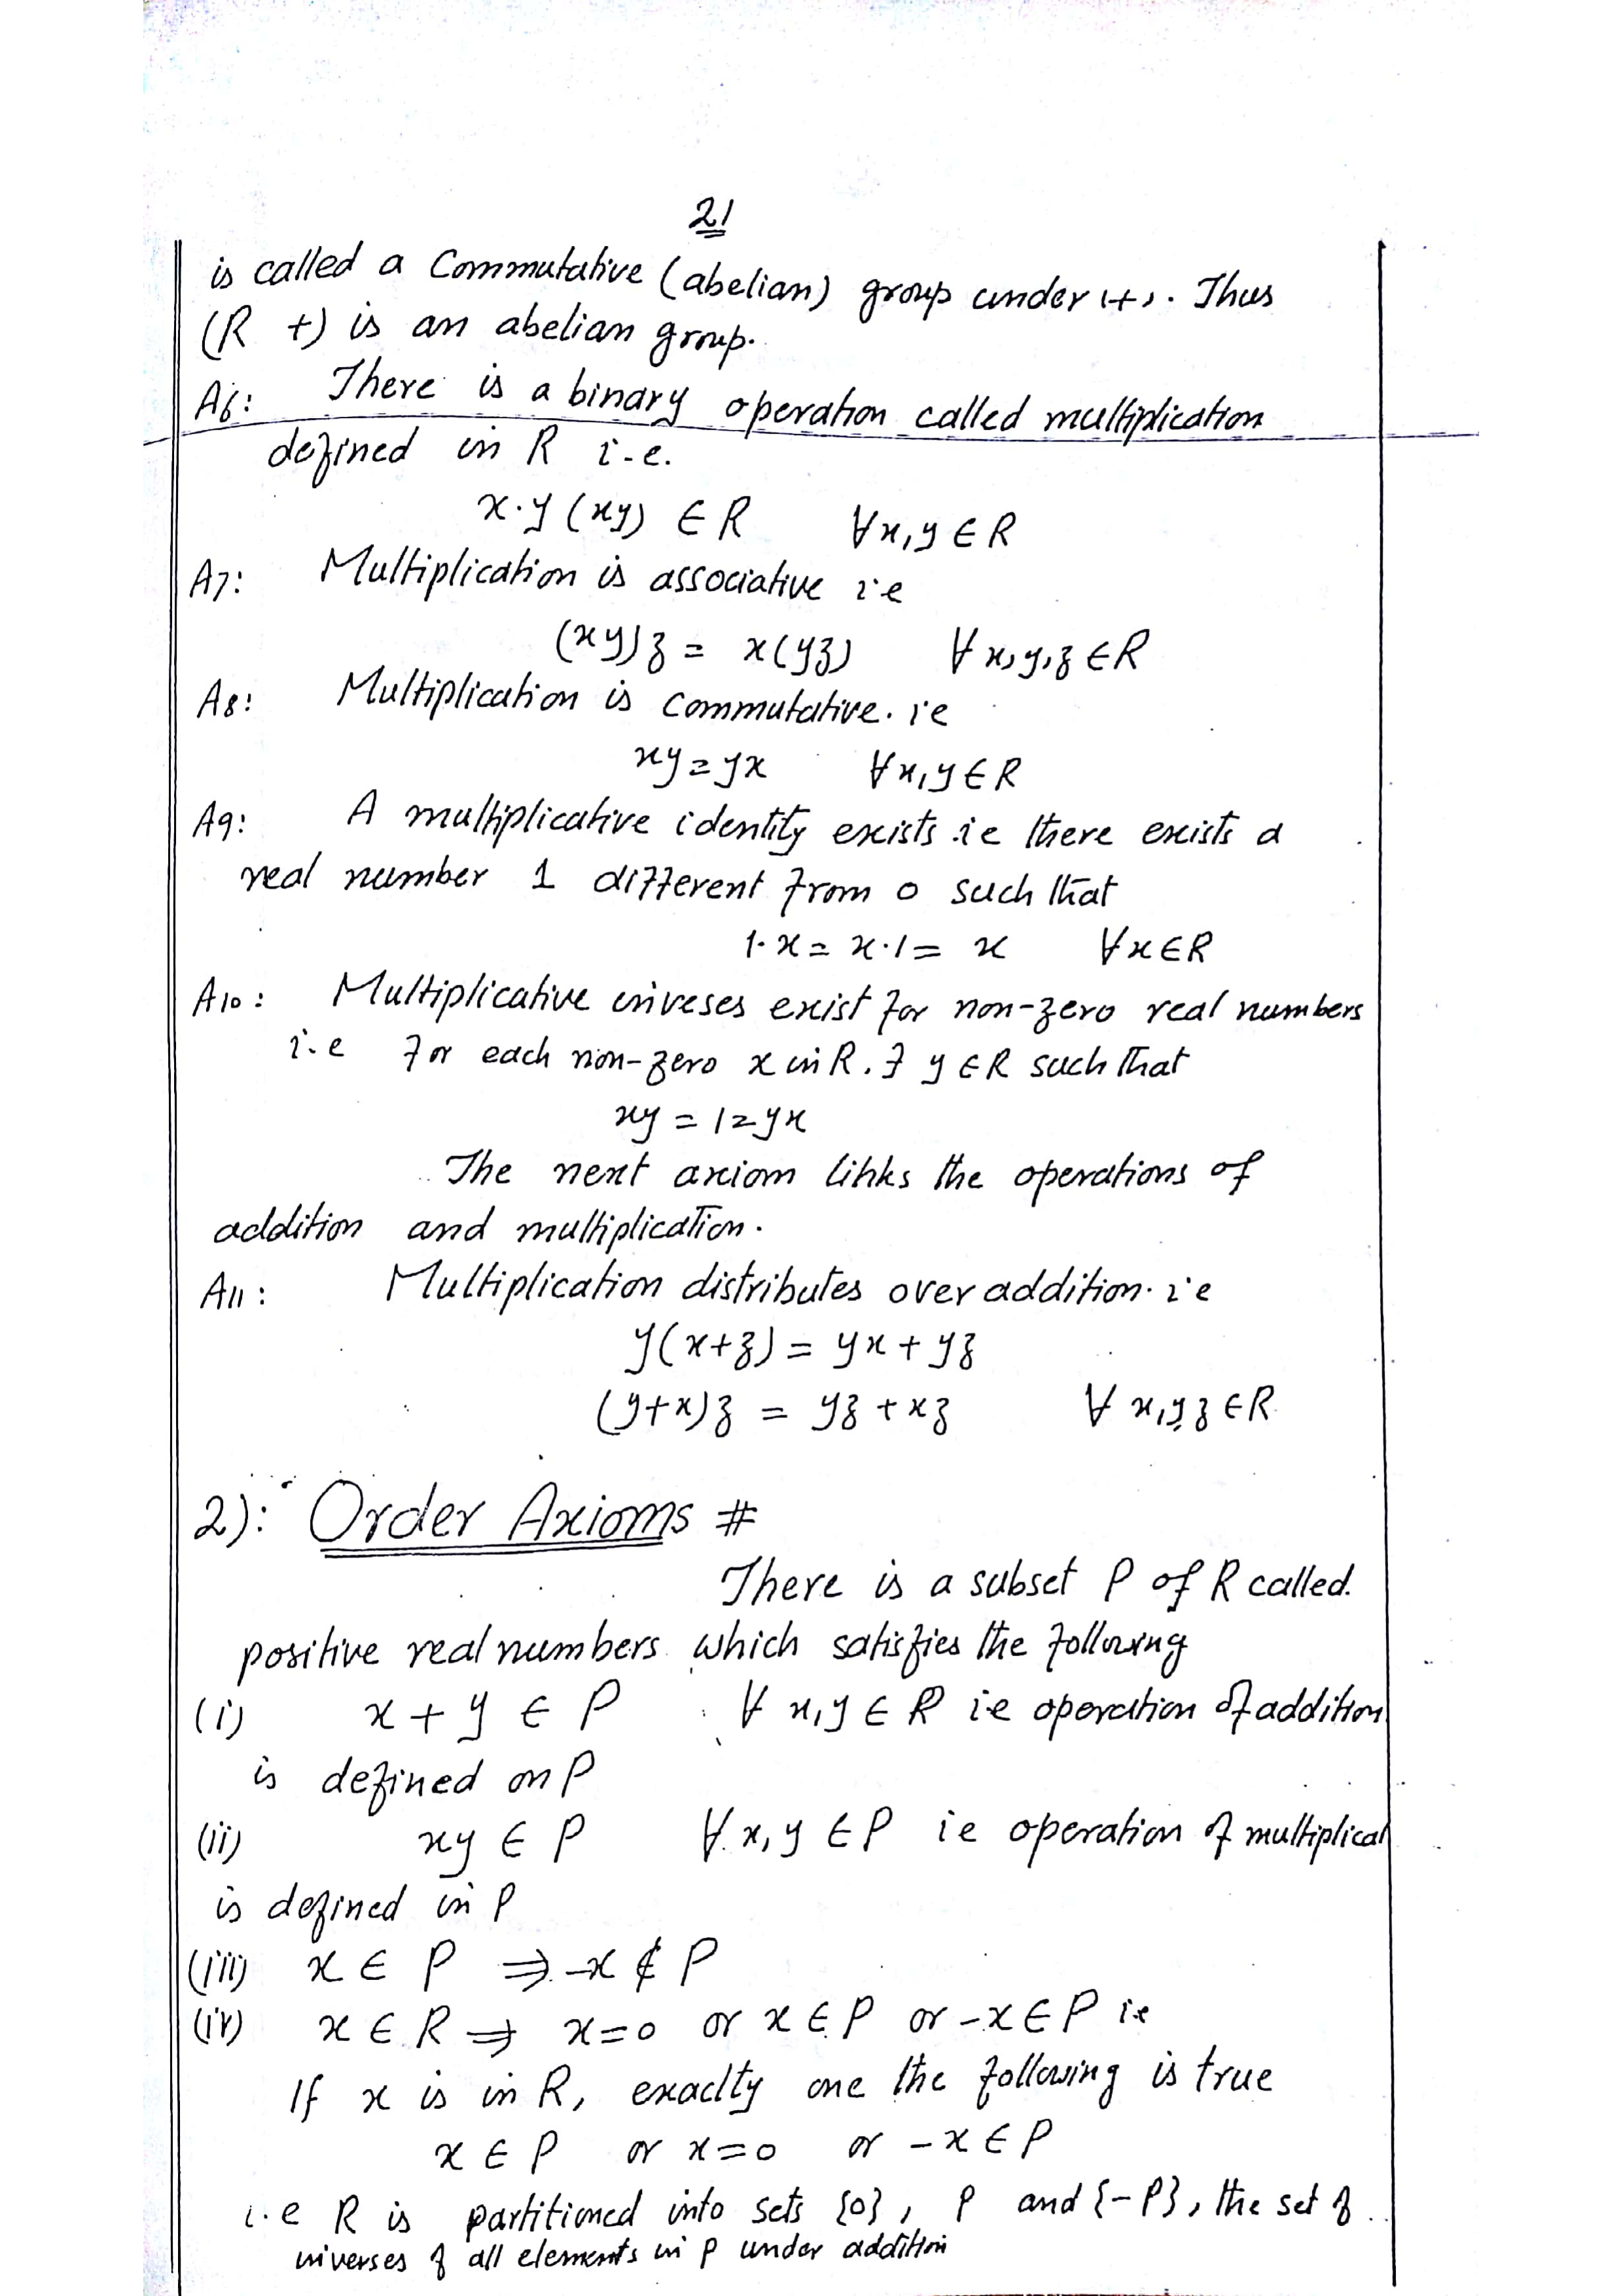 21
is called a Commutative (abelian) group under '+'. Thus
(R +) is an abelian group.
A6: There is a binary operation called multiplication
defined in R i.e.
x.y (xy) ∈ R ∀x,y ∈ R
A7: Multiplication is associative i.e
(xy)z = x(yz) ∀ x,y,z ∈ R
A8: Multiplication is commutative. i.e
xy = yx ∀x,y ∈ R
A9: A multiplicative identity exists i.e there exists a
real number 1 different from 0 such that
1.x = x.1 = x ∀x ∈ R
A10: Multiplicative inveses exist for non-zero real numbers
i.e for each non-zero x in R. ∃ y ∈ R such that
xy = 1 = yx
The next axiom links the operations of
addition and multiplication.
A11: Multiplication distributes over addition. i.e
y(x+z) = yx + yz
(y+x)z = yz + xz ∀ x,y,z ∈ R
2): Order Axioms #
There is a subset P of R called
positive real numbers which satisfies the following
(i) x + y ∈ P ∀ x,y ∈ R i.e operation of addition
is defined on P
(ii) xy ∈ P ∀ x,y ∈ P i.e operation of multiplicat
is defined in P
(iii) x ∈ P ⇒ -x ∉ P
(iv) x ∈ R ⇒ x=0 or x ∈ P or -x ∈ P i.e
If x is in R, exaclty one the following is true
x ∈ P or x=0 or -x ∈ P
i.e R is partitioned into sets {0}, P and {-P}, the set of
inverses of all elements in P under addition